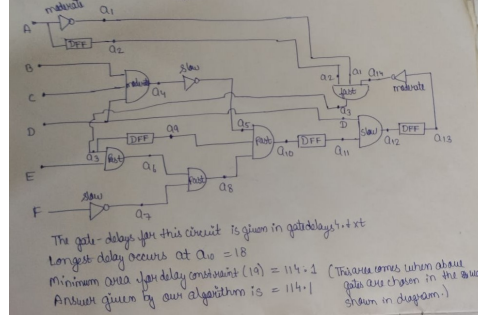 moderate
a1
A
DFF
a2
B
C
D
E
F
moderate
a4
slow
a2
a1
a14
fast
moderate
a3
D
slow
DFF
a12
a13
DFF
a9
a5
fast
a10
DFF
a11
a3
fast
a6
fast
a8
slow
a7
The gate-delays for this circuit is given in gatedelays4.txt
Longest delay occurs at a10 = 18
Minimum area for delay constraint (19) = 114.1 (This area comes when above
gates are chosen in the
Answer given by our algorithm is = 114.1
shown in diagram.)